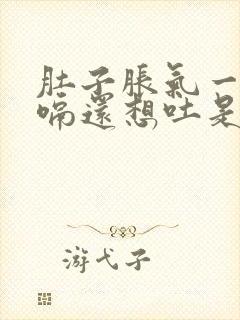 肚子脹氣一
嗝還想吐是
游弋子